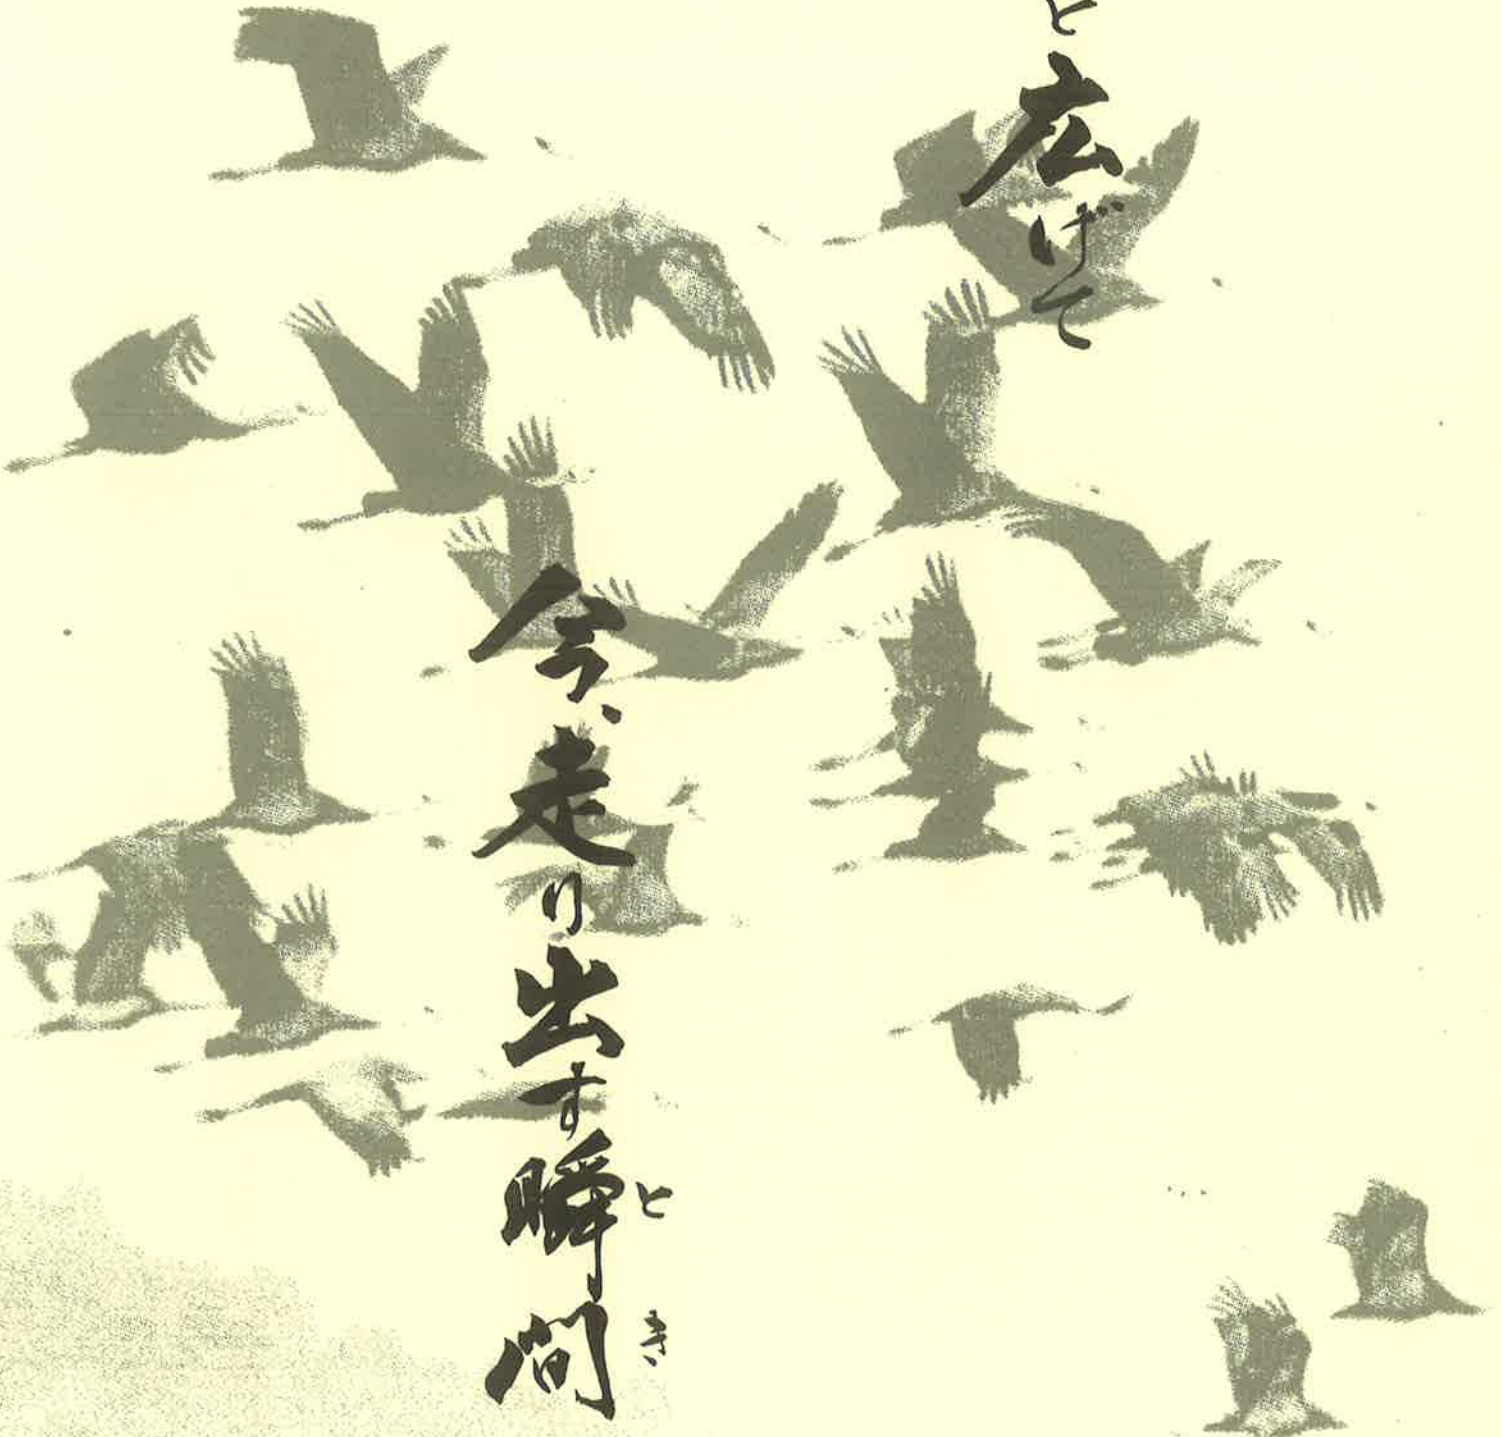 と広げて
今、走り出す瞬間
とき